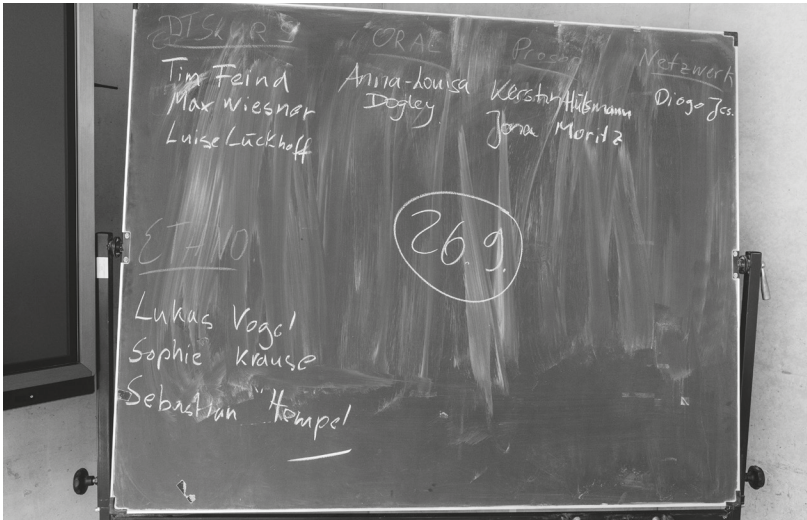 DISKURS
Tim Feind
Max Wiesner
Luise Lückhoff
ORAL
Anna-Louisa
Dogley
Kerstin Hülsmann
Jona Moritz
Netzwerk
Diogo
ETHNO
Lukas Vogel
Sophie Krause
Sebastian Hempel
26.9.